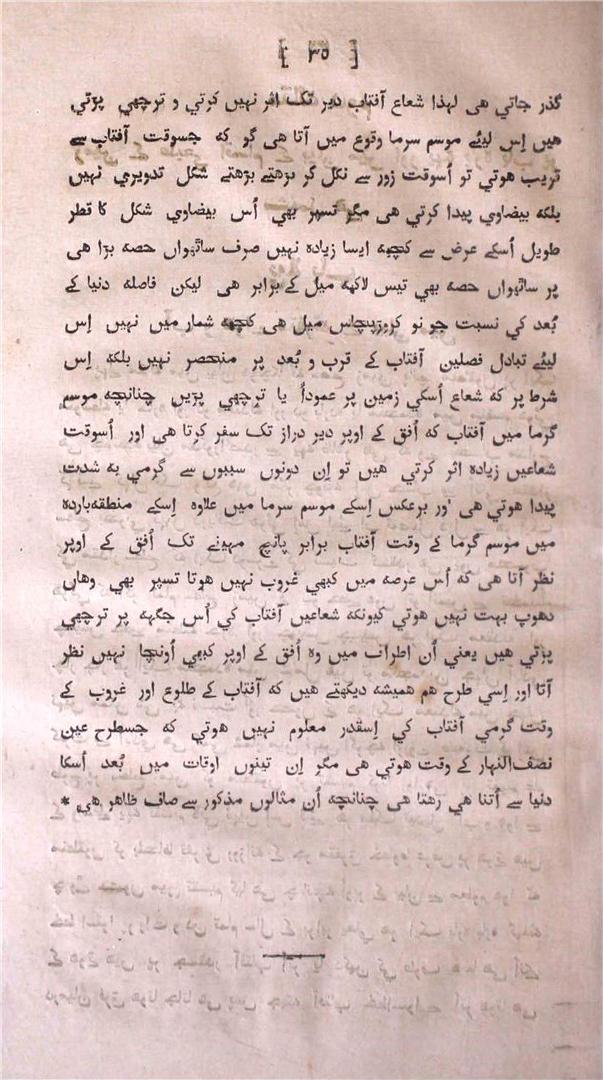 [ ٣٥ ]
گذر جاتي هی لہذا شعاع آفتاب دیر تک اثر نہیں کرتي و ترچھي پڑتي
هیں اِس لیئے موسم سرما وقوع میں آتا هی گو که جسوقت آفتاب سے
قریب هوتي تو اُسوقت زور سے نکل کر بڑهتے بڑهتے شکل تدویري نہیں
بلکه بیضاوي پیدا کرتي هی مگر تسپر بهي اُس بیضاوي شکل کا قطر
طویل اُسکے عرض سے کچھه ایسا زیاده نہیں صرف ساٹھواں حصه بڑا هی
پر ساٹھواں حصه بهي تیس لاکھه میل کے برابر هی لیکن فاصله دنیا کے
بُعد کي نسبت جو نو کروڑپچاس میل هی کچھه شمار میں نہیں اِس
لیئے تبادل فصلین آفتاب کے قرب و بُعد پر منحصر نہیں بلکه اِس
شرط پر که شعاع اُسکي زمین پر عموداً یا ترچھي پڑیں چنانچه موسم
گرما میں آفتاب که اُفق کے اوپر دیر دراز تک سفر کرتا هی اور اُسوقت
شعاعیں زیاده اثر کرتي هیں تو اِن دونوں سببوں سے گرمي به شدت
پیدا هوتي هی اور برعکس اِسکے موسم سرما میں علاوه اِسکے منطقه‌بارده
میں موسم گرما کے وقت آفتاب برابر پانچ مہینے تک اُفق کے اوپر
نظر آتا هی که اُس عرصه میں کبهي غروب نہیں هوتا تسپر بهي وهاں
دهوپ بہت نہیں هوتي کیونکه شعاعیں آفتاب کي اُس جگہه پر ترچھي
پڑتي هیں یعني اُن اطراف میں وه اُفق کے اوپر کبهي اُونچا نہیں نظر
آتا اور اِسي طرح هم همیشه دیکھتے هیں که آفتاب کے طلوع اور غروب کے
وقت گرمي آفتاب کي اِسقدر معلوم نہیں هوتي که جسطرح عین
نصف‌النہار کے وقت هوتي هی مگر اِن تینوں اوقات میں بُعد اُسکا
دنیا سے اُتنا هي رهتا هی چنانچه اُن مثالوں مذکور سے صاف ظاهر هی *